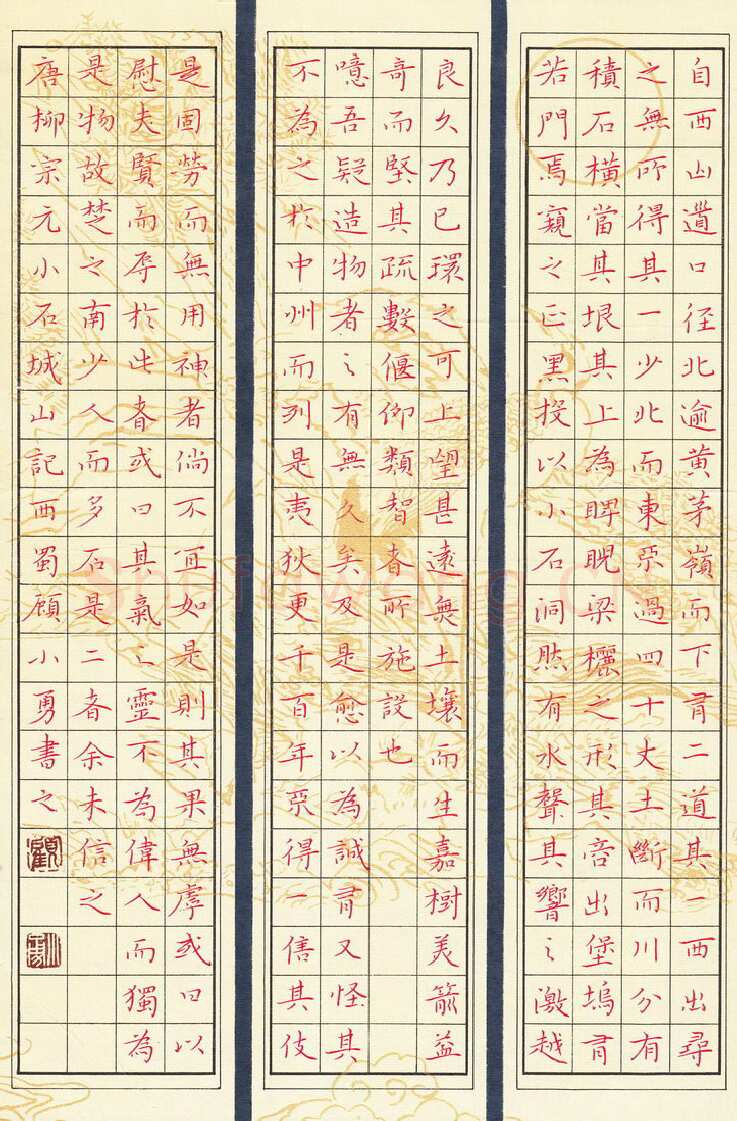 自西山道口径北逾黄茅嶺而下有二道其一西出尋
之無所得其一少北而東不過四十丈土斷而川分有
積石横當其垠其上為睥睨梁欐之形其旁出堡塢有
若門焉窺之正黑投以小石洞然有水聲其響之激越
良久乃已環之可上望甚遠無土壤而生嘉樹美箭益
奇而堅其疏數偃仰類智者所施設也
噫吾疑造物者之有無久矣及是愈以為誠有又怪其
不為之於中州而列是夷狄更千百年不得一售其伎
是固勞而無用神者倘不宜如是則其果無虖或曰以
慰夫賢而辱於此者或曰其氣之靈不為偉人而獨為
是物故楚之南少人而多石是二者余未信之
唐柳宗元小石城山記西蜀顧小勇書之
顧
小勇